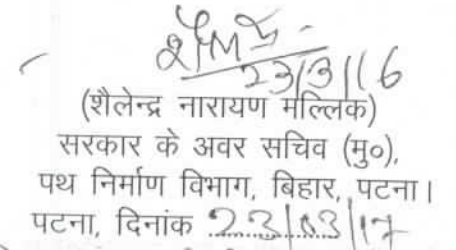 23/3/16
(शैलेन्द्र नारायण मल्लिक)
सरकार के अवर सचिव (मु०),
पथ निर्माण विभाग, बिहार, पटना।
पटना, दिनांक 23/03/17